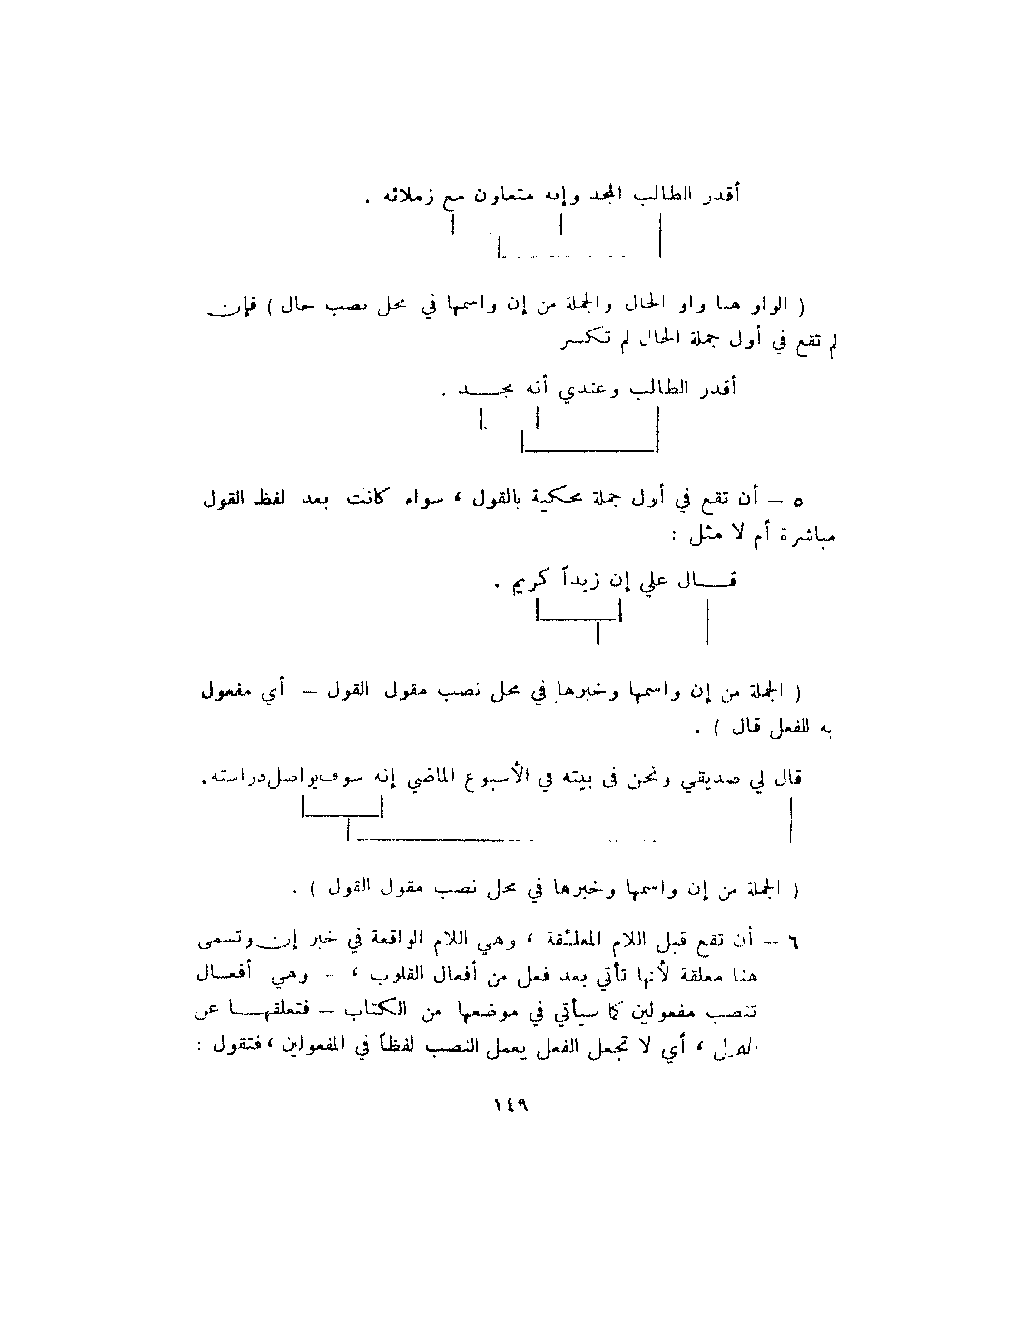 أقدر الطالب المجد وإنه متعاون مع زملائه .
( الواو هنا واو الحال والجملة من إن واسمها في محل نصب حال ) فإن
لم تقع في أول جملة الحال لم تكسر
أقدر الطالب وعندي أنه مجـــد .
٥ – أن تقع في أول جملة محكية بالقول ، سواء كانت بعد لفظ القول
مباشرة أم لا مثل :
قـــال علي إن زيداً كريم .
( الجملة من إن واسمها وخبرها في محل نصب مقول القول – أي مفعول
به للفعل قال ) .
قال لي صديقي ونحن في بيته في الأسبوع الماضي إنه سوف يواصل دراسته .
( الجملة من إن واسمها وخبرها في محل نصب مقول القول ) .
٦ – أن تقع قبل اللام المعلّقة ، وهي اللام الواقعة في خبر إن وتسمى
هنا معلقة لأنها تأتي بعد فعل من أفعال القلوب ، – وهي أفعـال
تنصب مفعولين كما سيأتي في موضعها من الكتاب – فتعلقهـــا عن
العمل ، أي لا تجعل الفعل يعمل النصب لفظاً في المفعولين ، فتقول :
١٤٩